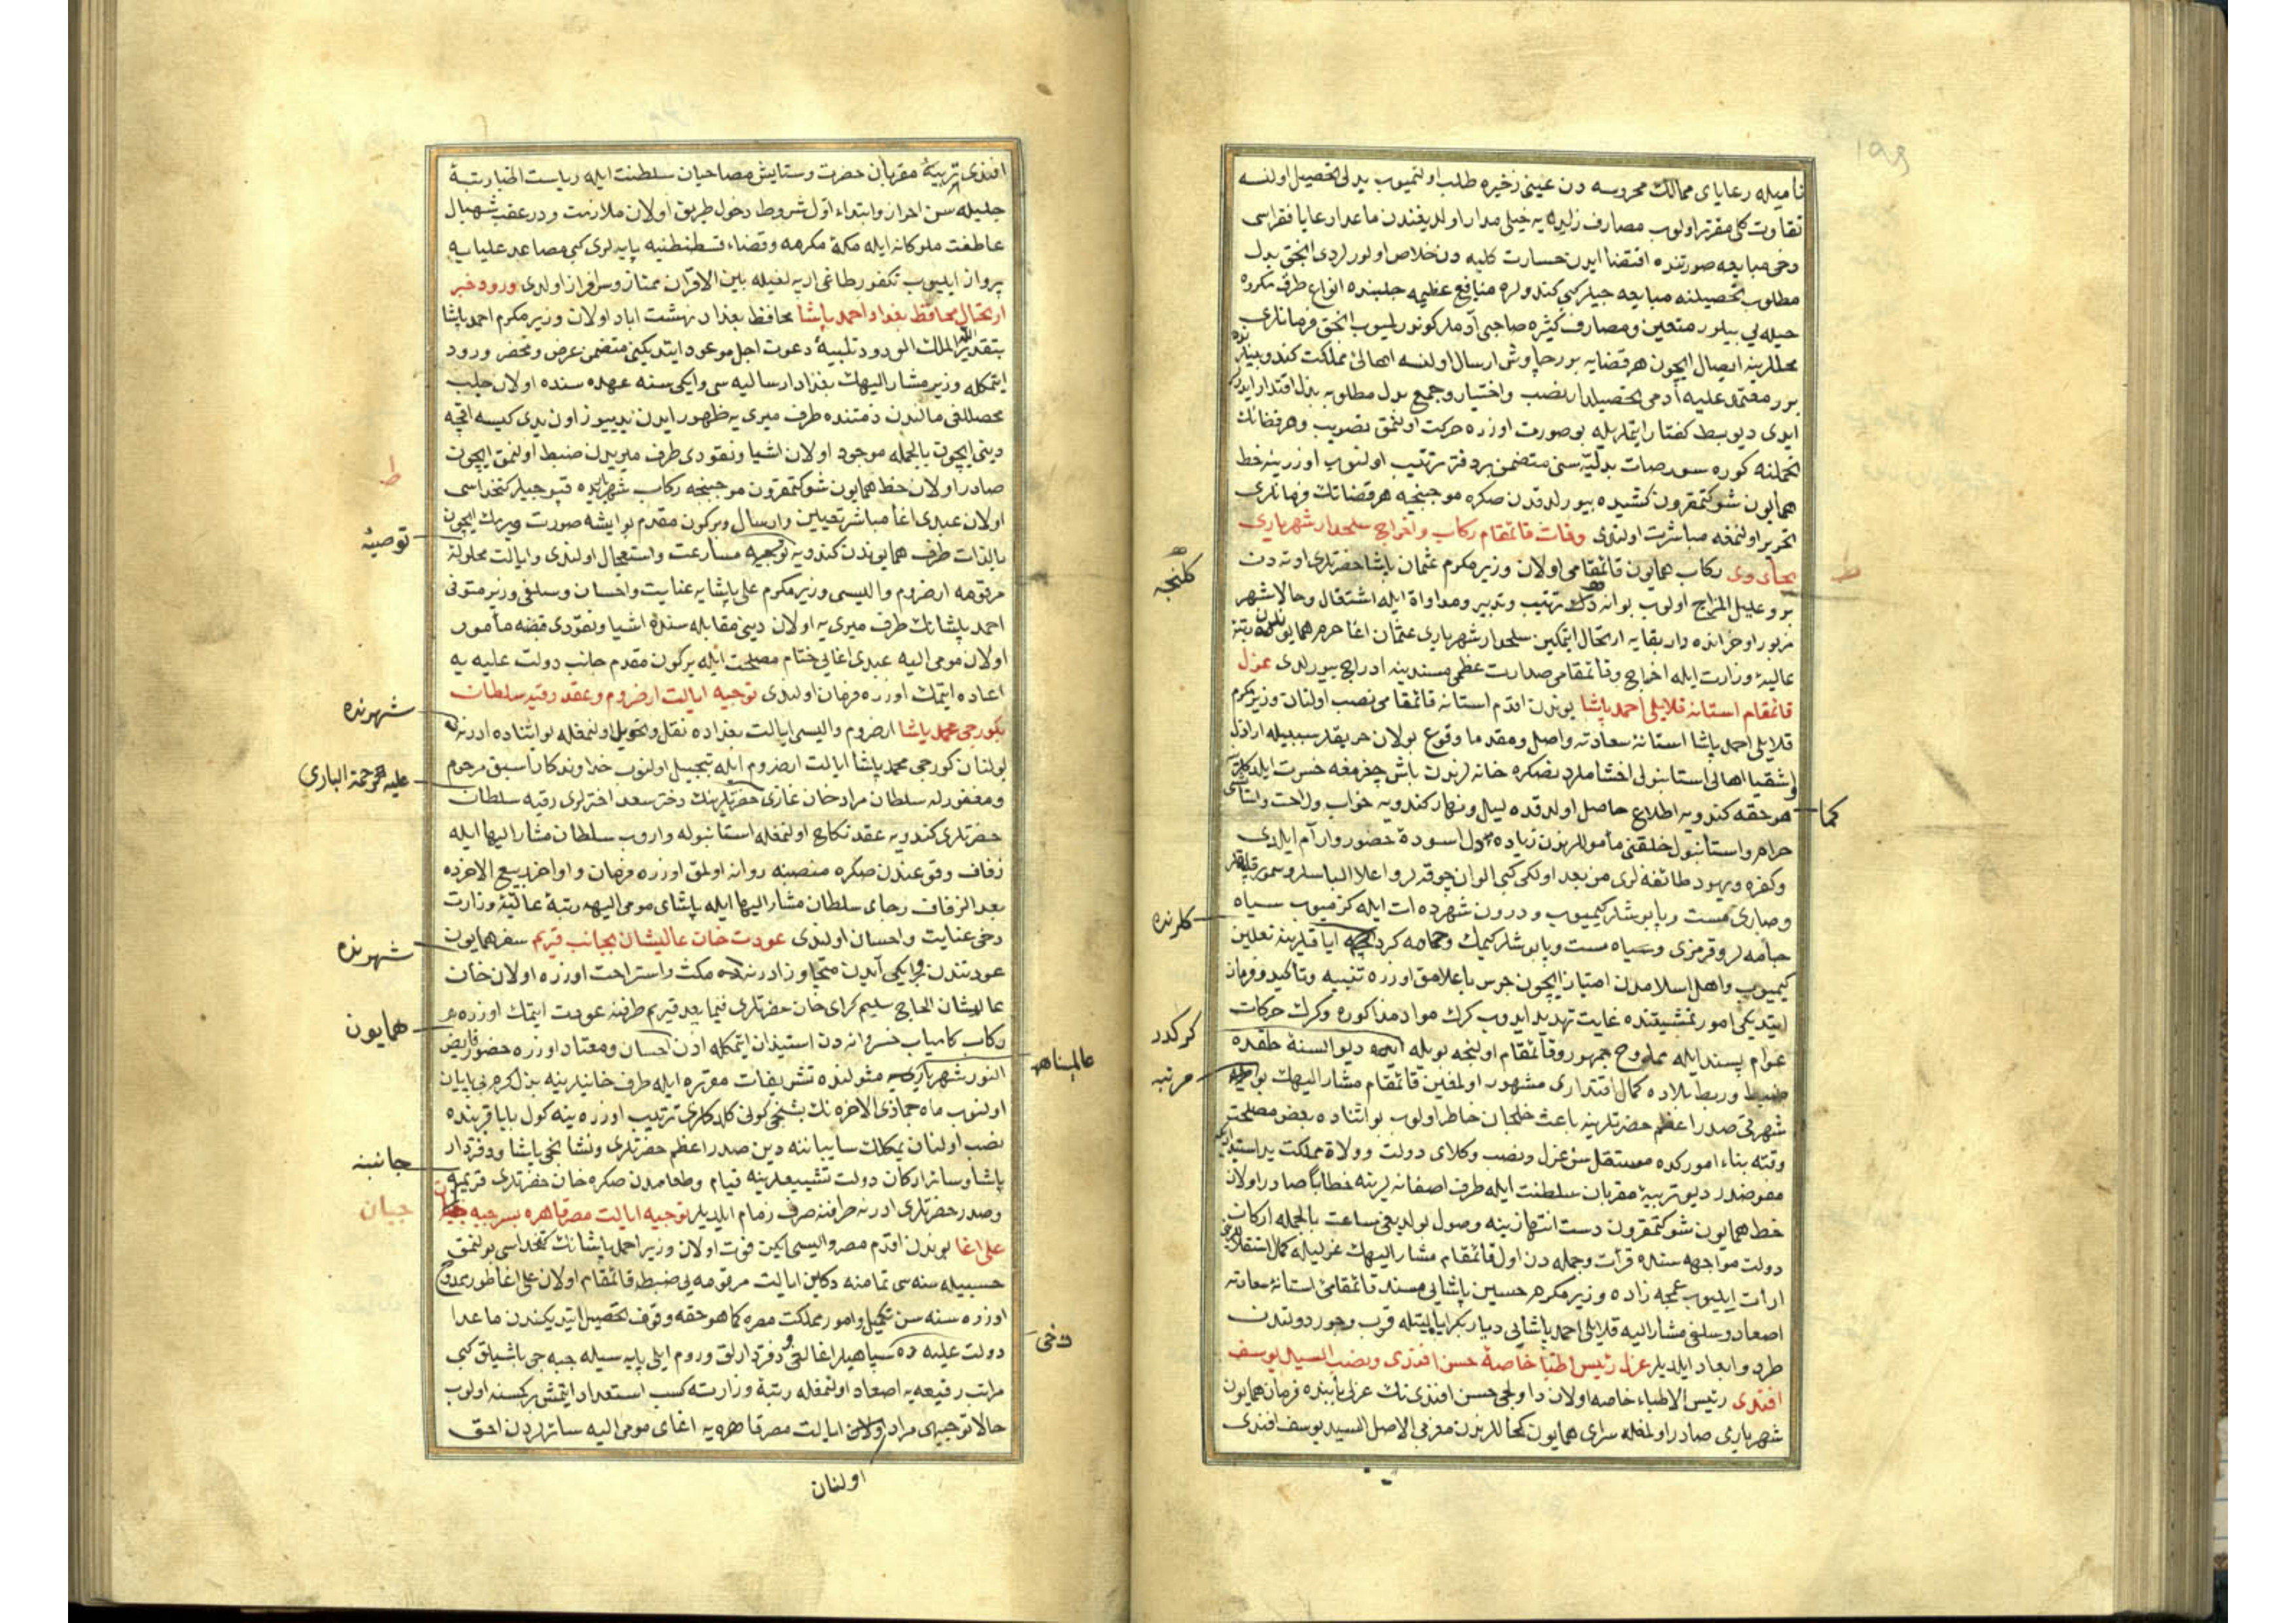 نامیله رعایای ممالك محروسه دن عینی ذخیره طلب اولنمیوب بدلی تحصیل اولنسه
تفاوت كلی مقرر اولوب مصارف زایده یه خیلی مدار اولدیغندن ماعدا رعایا فقراسی
دخی مبایعه صورتنده اقتضا ایدن خسارت كلیه دن خلاص اولورلردی انجق بدل
مطلوب تحصیلنه مبایعه جیلر كبی كندولره منافع عظیمه جلبنده انواع طرق مكروه
حیله یی بیلور متعین و مصارف كثیره صاحبی آدملر كوندرلمیوب انجق فرمانلری
محللرینه ایصال ایچون هر قضایه برر چاوش ارسال اولنسه اهالئ مملكت كندو بینلرنده
برر معتمد علیه آدمی تحصیلدار نصب و اختیار و جمع بدل مطلوبه بذل اقتدار ایدرلر
ایدی دیو بسط كفتار ایتملریله بو صورت اوزره حركت اولنمق تصویب و هر قضانك
تحملنه كوره سورصات بدلیه سنی متضمن بر دفتر ترتیب اولنوب اوزرینه خط
همایون شوكتمقرون كشیده بیورلدقدن صكره موجبنجه هر قضانك فرمانلری
تحریر اولنمغه مباشرت اولندی وفات قائمقام ركاب و اخراج سلحدار شهریاری
بجای وی ركاب همایون قائمقامی اولان وزیر مكرم عثمان پاشا حضرتلری اوته دن
كلنجه
برو علیل المزاج اولوب بو انه دك ترتیب و تدبیر و مداواة ایله اشتغال و حالا شهر
مزبور اواخرنده دار بقایه ارتحال ایتمكین سلحدار شهریاری عثمان اغا حرم همایوندن رتبۀ
عالیۀ وزارت ایله اخراج و قائمقامی صدارت عظمی مسندینه ادراج بیورلدی عزل
قائمقام استانه قلایلی احمد پاشا بوندن اقدم استانه قائمقامی نصب اولنان وزیر مكرم
قلایلی احمد پاشا استانۀ سعادته واصل و مقدما وقوع بولان حریقلر سببیله اراذل
و اشقیا اهالی استانبولی اخشاملردنصكره خانه لرندن باش چقرمغه خسرت ایلدكلرینه
كما
هو حقه كندویه اطلاع حاصل اولدقده لیل و نهار كندویه خواب و راحت و استانی
حرام و استانبول خلقنی مأموللرندن زیاده اسودۀ حضور و آرام ایلدی
و كفره و یهود طائفه لری من بعد اولكی كبی الوان چوقه لر و اعلا البسه لر و سمور قلپاقلر
و صاری مست و پاپوشلر كیمیوب و درون شهرده ات ایله كزمیوب سیاه
كلرنده
جامه لر و قرمزی و سیاه مست و پاپوشلر كیمك و حمامه كردكلرنده ایاقلرینه نعلین
كیمیوب و اهل اسلامدن امتیاز ایچون جرس یا علامق اوزره تنبیه و تأكید و فرمان
ایتدیكی امور تمشیتنده غایت تهدید ایدوب كرك مواد مذكوره و كرك حركات
كركدر
عوام پسند ایله ممدوح جمهور و قائمقام اولنجه بویله دیو السنۀ خلقده
ضبط و ربط بلاده كمال اقتداری مشهور اولمغین قائمقام مشار الیهك بو
مرتبه
شهرتی صدر اعظم حضرتلرینه باعث خلجان خاطر اولوب بو اثناده بعض مصلحت
وقته بناء امورکده مستقل سن عزل و نصب وكلای دولت و ولاة مملكت
مفوضدر دیو تربیۀ مقربان سلطنت ایله طرف اصفانه لرینه خطابا صادر اولان
خط همایون شوكتمقرون دست انتهازینه وصول بولدیغی ساعت بالجمله اركان
دولت مواجهه سنده قرأت و جمله دن اول قائمقام مشار الیهك عزلیله كمال استقلالین
ارائت ایلیوب عمجه زاده وزیر مكرم حسین پاشایی مسند قائمقامئ استانۀ سعادته
اصعاد و سلفی مشار الیه قلایلی احمد پاشایی دیار بكر ایالتیله قرب و جوار دولتدن
طرد و ابعاد ایلدیلر عزل رئیس اطبا خاصۀ حسن افندی و نصب السید یوسف
افندی رئیس الاطباء خاصه اولان داولجی حسن افندی نك عزلی بابنده فرمان همایون
شهریاری صادر اولمغله سرای همایون كحاللرندن مغربی الاصل السید یوسف افندی
افندی تربیۀ مقربان حضرت و ستایش مصاحبان سلطنت ایله ریاست اطبا رتبۀ
جلیله سن احراز و ابتداء اول شروط دخول طریق اولان ملازمت و در عقب شهبال
عاطفت ملوكانه ایله مكۀ مكرمه و قضاء قسطنطنیه پایه لری كبی مصاعد علیایه
پرواز ایلیوب تكفور طاغی ارپه لغیله بین الاقران ممتاز و سرافراز اولدی ورود خبر
ارتحال محافظ بغداد احمد پاشا محافظ بغداد بهشت اباد اولان وزیر مكرم احمد پاشا
بتقدیر الله الملك الودود تلبیۀ دعوت اجل موعود ایتدیكنی متضمن عرض و محضر ورود
ایتمكله وزیر مشار الیهك بغداد ارسالیه سی و ایكی سنه عهده سنده اولان حلب
محصللغی مالندن ذمتنده طرف میری یه ظهور ایدن یدییوز اون یدی كیسه اقچه
دینی ایچون بالجمله موجود اولان اشیا و نقودی طرف میریدن ضبط اولنمق ایچون
صادر اولان خط همایون شوكتمقرون موجبنجه ركاب شهریده قپوجیلر كتخداسی
اولان عبدی اغا مباشر تعیین و ارسال و بر كون مقدم بو ایشه صورت ویرمك ایچون
توصیۀ
بالذات طرف همایوندن كندویه مسارعت و استعجال اولندی و ایالت محلولۀ
مرقومه ارضروم والیسی وزیر مكرم علی پاشایه عنایت و احسان و سلفی وزیر متوفی
احمد پاشانك طرف میری یه اولان دینی مقابله سنده اشیا و نقودی قبضه مأمور
اولان مومی الیه عبدی اغایی ختام مصلحت ایله بر كون مقدم جانب دولت علیه یه
اعاده ایتمك اوزره فرمان اولندی توجیه ایالت ارضروم و عقد رقیه سلطان
بكورجی محمد پاشا ارضروم والیسی ایالت بغداده نقل و تحویل اولنمغله بو اثناده ادرنه
شهرنده
بولنان كورجی محمد پاشا ایالت ارضروم ایله تبجیل اولنوب خداوندكار اسبق مرحوم
و مغفور له سلطان مراد خان غازی حضرتلرینك دختر سعد اخترلری رقیه سلطان
علیه رحمة الباری
حضرتلری كندویه عقد نكاح اولنمغله استانبوله واروب سلطان مشار الیها ایله
زفاف وقوعندن صكره منصبنه روانه اولمق اوزره فرمان و اواخر ربیع الاخرده
بعد الزفاف رجای سلطان مشار الیها ایله پاشای مومی الیهه رتبۀ عالیۀ وزارت
دخی عنایت و احسان اولندی عودت خان عالیشان بجانب قریم سفر همایون
شهرنده
عودتندن بر ایكی آیدن متجاوز ادرنه ده مكث و استراحت اوزره اولان خان
عالیشان الحاج سلیم كرای خان حضرتلری فیما بعد قریم طرفنه عودت ایتمك اوزره
همایون
ركاب كامیاب خسروانه دن استیذان ایتمكله اذن احسان و معتاد اوزره حضور فایض
النور شهریاری یه مثولنده تشریفات مقرره ایله طرف خانیلرینه بذل كرم بی پایان
عالمپناه
اولنوب ماه جماذی الاخره نك بشنجی كونی كلدكلری ترتیب اوزره ینه كول بابا قربنده
نصب اولنان یمكلك سایبانده دین صدر اعظم حضرتلری و نشانجی پاشا و دفتردار
پاشا و سائر اركان دولت تشییعلرینه قیام و طعامدن صكره خان حضرتلری قریم
جانبنه
و صدر حضرتلری ادرنه طرفنه صرف زمام ایلدیلر توجیه ایالت مصر قاهره بسر جبه جیان
جیان
علی اغا بوندن اقدم مصر والیسی ایكن فوت اولان وزیر احمد پاشانك كتخداسی بولنمق
حسبیله سنه سی تمامنه دكین ایالت مرقومه یی ضبطه قائمقام اولان علی اغا طور ممدوح
اوزره سنه سن تكمیل و امور مملكت مصره كما هو حقه وقوف تحصیل ایتدیكندن ماعدا
دولت علیه ده سپاهیلر اغالغی و دفتردارلق و روم ایلی پایه سیله جبه جی باشیلق كبی
دخی
مراتب رفیعه یه اصعاد اولنمغله رتبۀ وزارته كسب استعداد ایتمش بر كسنه اولوب
حالا توجیهی مراد اولنان ایالت مصر قاهره یه اغای مومی الیه سائرلردن احق
اولنان